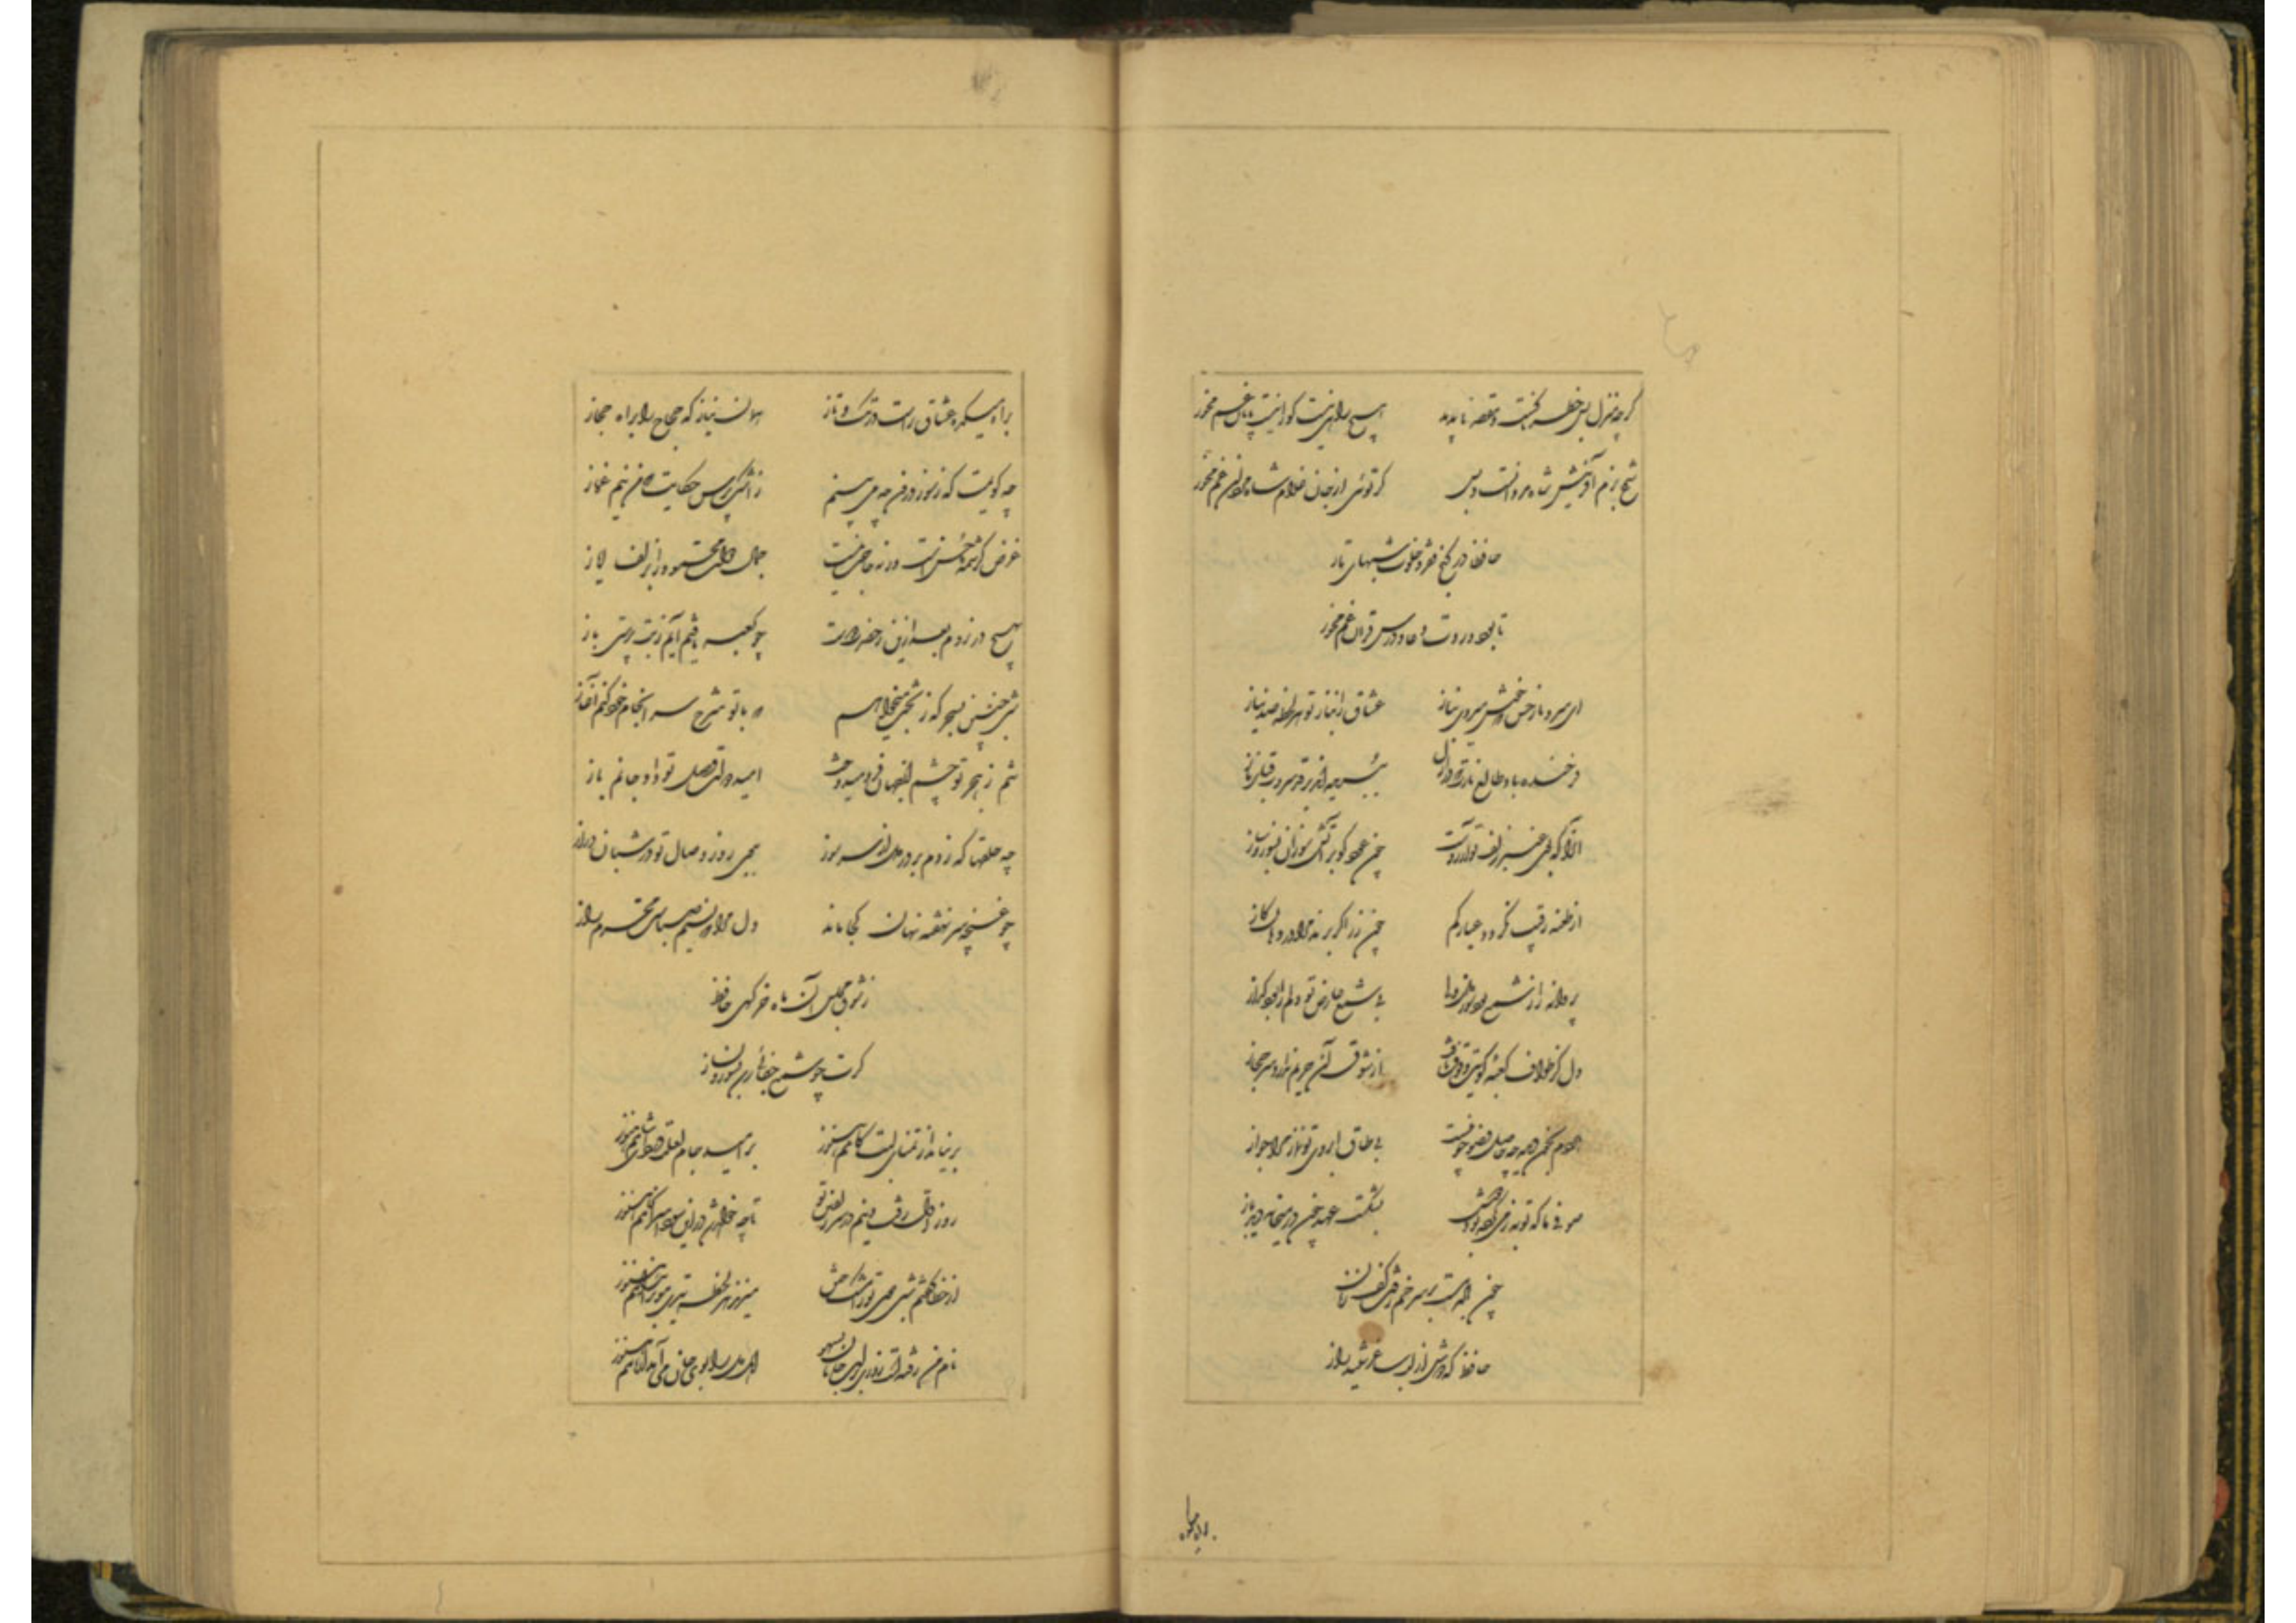 گرچه منزل بس خطرناکست و مقصد ناپدید هیچ راهی نیست کورا نیست پایان غم مخور
آفرینش شاه مردانست و بس گر توئی از جان غلام شاه مردان غم مخور
حافظا در کنج فقر و خلوت شبهای تار
تا بود وردت دعا و درس قرآن غم مخور
ای سرو ناز حسن که خوش میروی بناز عشاق را بناز تو هر لحظه صد نیاز
فرخنده باد طالع نازت که در ازل ببریده‌اند بر قد سروت قبای ناز
آنرا که بوی عنبر زلف تو آرزوست چون عود گو بر آتش سوزان بسوز و ساز
از طعنه رقیب نگردد عیار کم چون زر اگر برند مرا در دهان گاز
پروانه را ز شمع بود سوز دل ولی بی شمع عارض تو دلم را بود گداز
دل کز طواف کعبه کویت وقوف یافت از شوق آن حریم ندارد سر حجاز
هر دم بخون دیده چه حاصل وضو چو نیست بی طاق ابروی تو نماز مرا جواز
صوفی ما که توبه ز می کرده بود دوش بشکست عهد چون در میخانه دید باز
چون باده باز بر سر خم رفت کف زنان
حافظ که دوش از لب ساغر شنید راز
براه میکده
براه میکده عشاق راست در تک و تاز همان نیاز که حجاج را براه حجاز
چه گویمت که ز سوز درون چه می‌بینم ز اشک پرس حکایت که من نیم غماز
غرض کرشمه حسنست ورنه حاجت نیست جمال دولت محمود را بزلف ایاز
بهیچ در نروم بعد ازین ز حضرت دوست چو کعبه یافتم آیم ز بت پرستی باز
شبی چنین بسحر گه ز بخت میخواهم که با تو شرح سرانجام خود کنم آغاز
ز هجر تو چشم از جهان فرو میدوخت امید دولت وصل تو داد جانم باز
چه حلقها که زدم بر در دل از سر سوز ببوی روز وصال تو در شبان دراز
چو غنچه سر نهفته نهان کجا ماند دل مرا که نسیم صباست محرم راز
ز شوق مجلس آن ماه خرگهی حافظ
گرت چو شمع جفائی رسد بسوز و بساز
برنیامد از تمنای لبت کامم هنوز بر امید جام لعلت دردی آشامم هنوز
روز اول رفت دینم در سر زلفین تو تا چه خواهد شد درین سودا سرانجامم هنوز
از خطا گفتم شبی موی ترا مشک ختن میزند هر لحظه تیغی مو بر اندامم هنوز
نام من رفتست روزی بر لب جانان بسهو اهل دل را بوی جان می‌آید از نامم هنوز